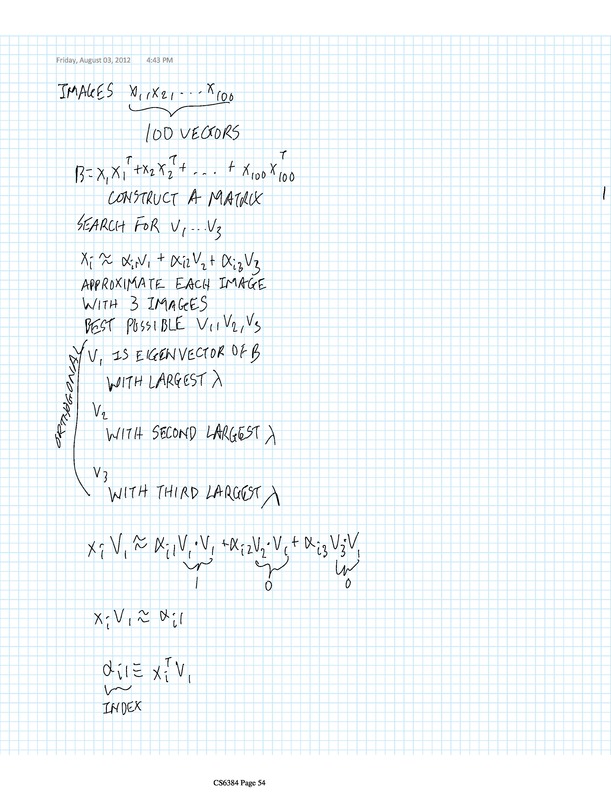 Friday, August 03, 2012 4:43 PM
IMAGES x₁, x₂, ... x₁₀₀
100 VECTORS
B = x₁x₁ᵀ + x₂x₂ᵀ + ... + x₁₀₀x₁₀₀ᵀ
CONSTRUCT A MATRIX
SEARCH FOR V₁ ... V₃
xᵢ ≈ αᵢ₁V₁ + αᵢ₂V₂ + αᵢ₃V₃
APPROXIMATE EACH IMAGE
WITH 3 IMAGES
BEST POSSIBLE V₁, V₂, V₃
ORTHOGONAL
V₁ IS EIGENVECTOR OF B
WITH LARGEST λ
V₂
WITH SECOND LARGEST λ
V₃
WITH THIRD LARGEST λ
xᵢV₁ ≈ αᵢ₁V₁·V₁ + αᵢ₂V₂·V₁ + αᵢ₃V₃·V₁
1 0 0
xᵢV₁ ≈ αᵢ₁
αᵢ₁ ≡ xᵢᵀV₁
INDEX
CS6384 Page 54